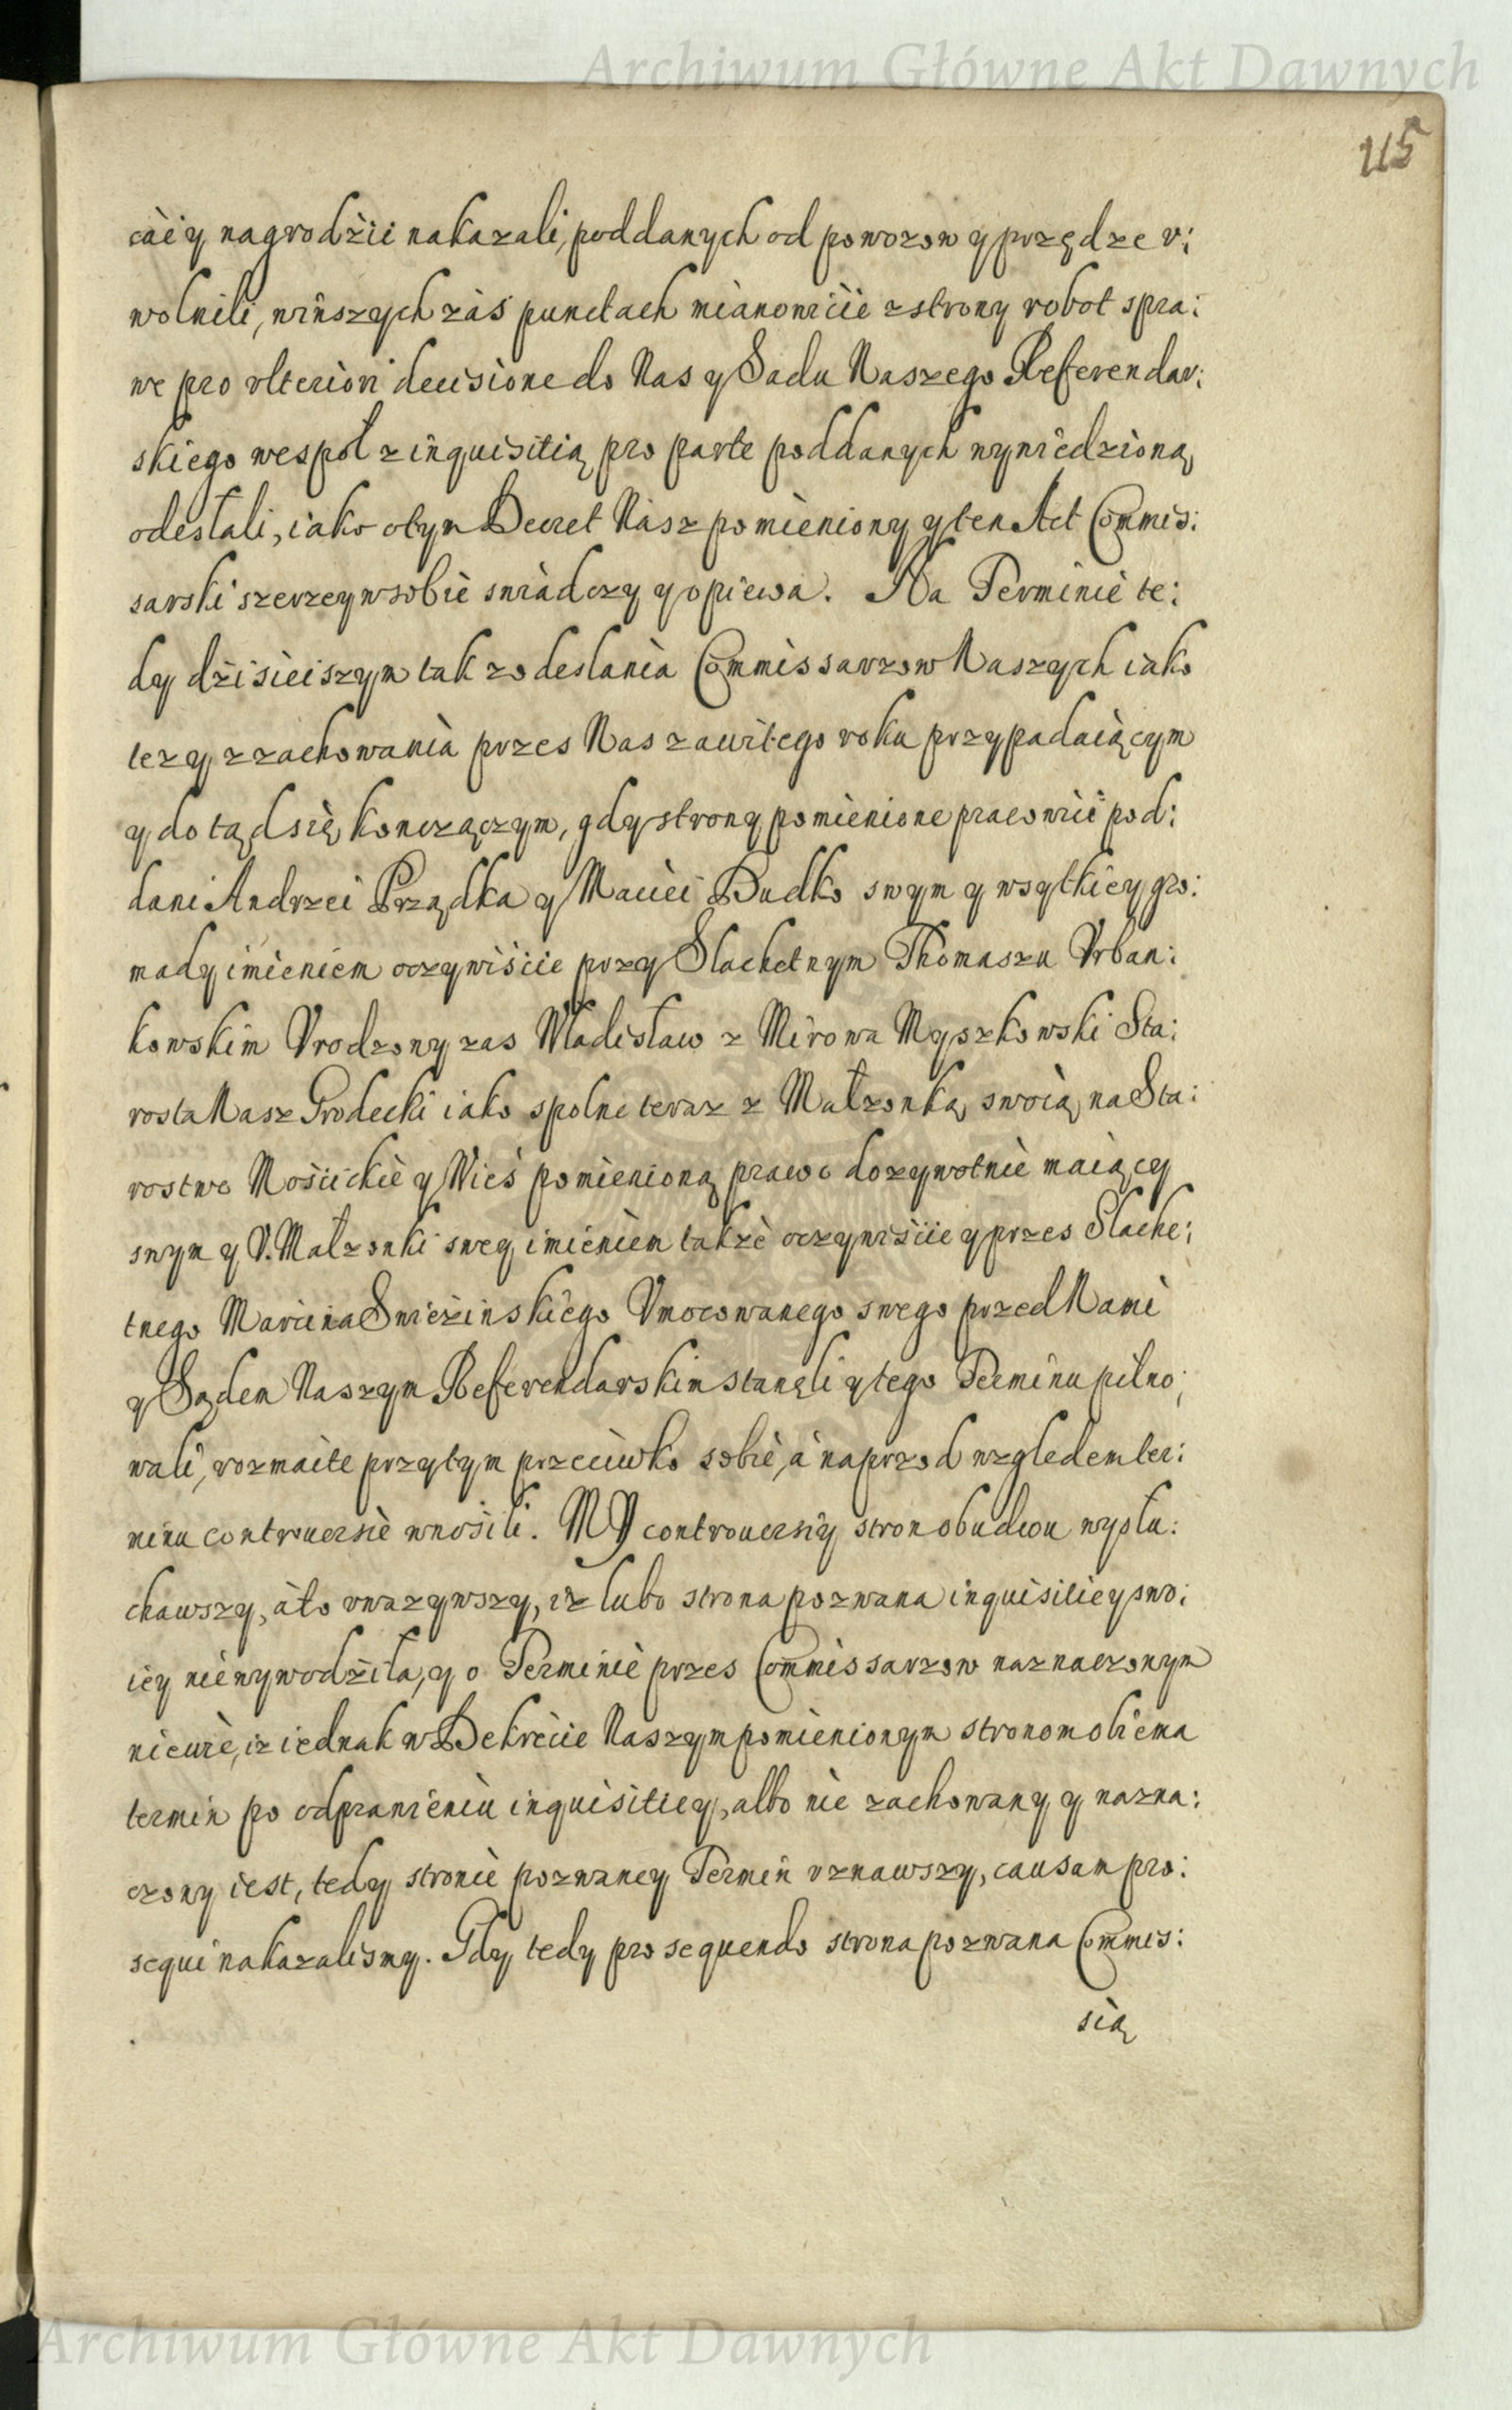 Archiwum Główne Akt Dawnych
115
cáć y nagrodźić nakazali, poddanych od powozow y przędze v:
wolnili, w inszych záś punctach mianowicie z strony robot spra:
we pro vlteriori decisione do Nas y Sadu Naszego Referendar:
skiego wespoł z inquisitią pro parte poddanych wywiedzioną
odesłali, iako o tym Decret Nasz pomieniony y ten Act Commis:
sarski szerzey w sobie swiadczy y opiewa. Na Terminie te:
dy dźisieiszym tak z odesłania Commissarzow Naszych iako
tez y z zachowania przes Nas zawitego roku przypadaiącym
y do tąd się konczączym, gdy strony pomienione pracowići pod:
dani Andrzei Prządka y Maciei Dudko swym y wsytkiey gro:
mady imieniem oczywiście przy Slachetnym Thomaszu Vrban:
kowskim Vrodzony zas Władisław z Mirowa Myszkowski Sta:
rosta Nasz Grodecki iako spolne teraz z Małzonką swoią na Sta:
rostwo Mościckie y Wieś pomienioną prawo dozywotnie maiący
swym y V. Małzonki swey imieniem także oczywiście y przes Slache:
tnego Marcina Swiezinskiego Vmocowanego swego przed Nami
y Sądem Naszym Referendarskim stanęli y tego Terminu pilno:
wali, rozmaite przytym przeciwko sobie, á naprzod względem ter:
minu controuersie wnośili. MY controuersiy stron obudwu wysłu:
chawszy, áto vwazywszy, iz lubo strona pozwana inquisitiey swo:
iey nie wywodźiła, y o Terminie przes Commissarzow naznaczonym
niewie, iz iednak w Dekrecie Naszym pomienionym stronom obiema
termin po odprawieniu inquisitiey, albo nie zachowany y nazna:
czony iest, tedy stronie pozwaney Termin vznawszy, causam pro:
sequi nakazalismy. Gdy tedy prosequendo strona pozwana Commis:
sią
Archiwum Główne Akt Dawnych